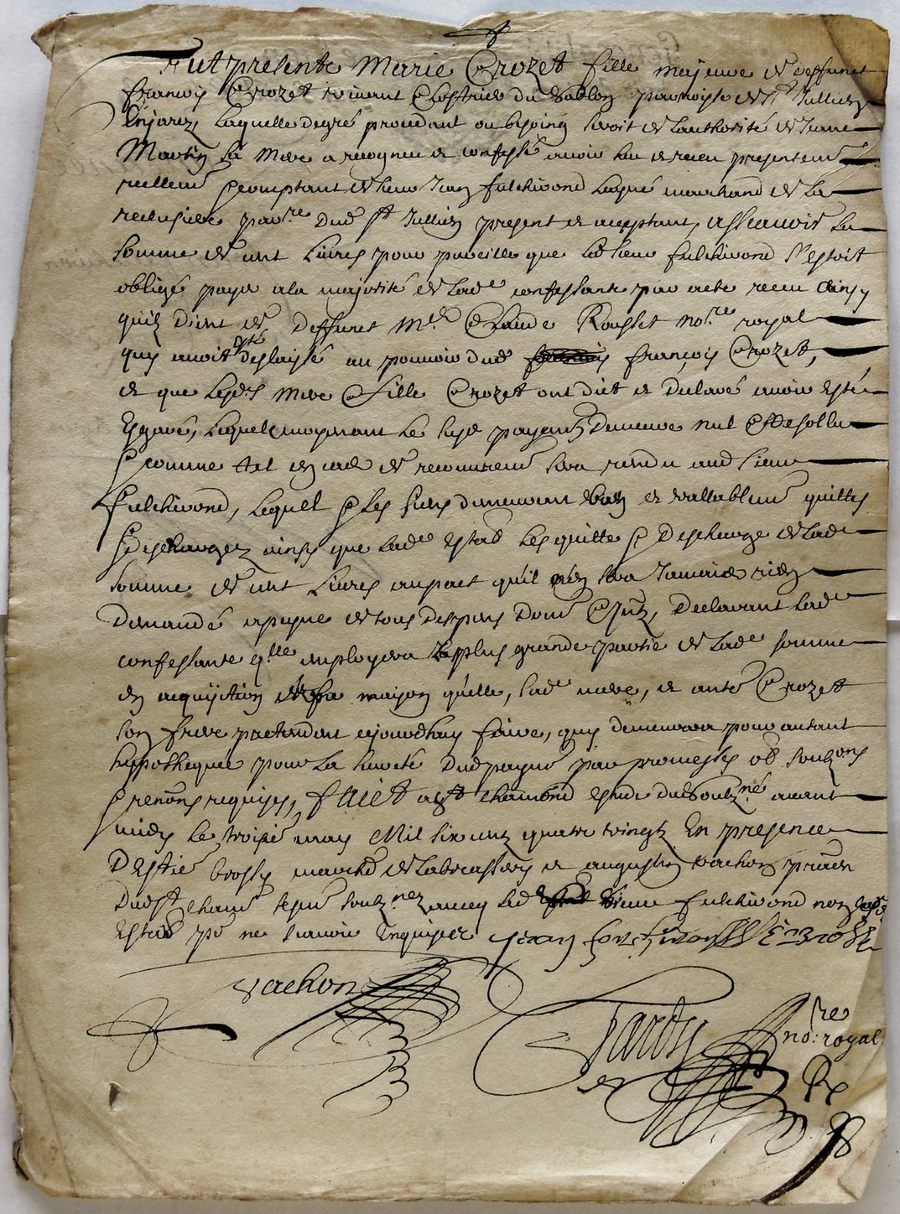 Fut presente Marie Crozet fille majeure de deffunct
françois Crozet vivant Chastrier du Sablon parroisse de St Jullien
Enjarez, laquelle de gré procedant ou besoing seroit de lauthorité de
Martin sa mere a recogneu et confessé avoir heu et receu presentemt
reellemt comptant de sieur Jean fulchirond marchand de la
par.re dud St Jullien present et acceptant, ascavoir la
somme de cent Livres pour pareille que led sieur fulchirond s'estoit
obligé payer a la majorité de lad.e confessante par acte receu ainsy
quilz dient de deffunct M.re Claude Rousset no.re royal
qui avoit delaissé au pouvoir dud françois Crozet,
et que lesd.s mere & fille Crozet ont dict et declaré avoir esté
Esgaré, lequel moyenant le susd payemt demeure nul & de
comme tel en cas de recouvremt sera rendu aud sieur
fulchirond, lequel & les siens demeurent bien et vallablemt quittes
& deschargez ainsy que lad.e les quitte & descharge de lad.e
somme de cent Livres au pact qu'il n'en sera jamais rien
demandé a payne de tous despens dom. & Declarant lad.e
confessante q.lle employera la plus grande partie de lad.e somme
en acquisition de la maison qu'elle, sad.e mere, et ant.e Crozet
son frere pretendent ajourdhuy faire, qui demeurera pour autant
hypotheque pour la seureté dud payemt par promesses ob. soubz.ons
& renons requises, faict a St chamond estude du soubz.né avant
midy le troisie may Mil six centz quatre vingtz En presence
D'Estie marcht de et augustin vachon praticien
Dud St chamd soubz.nez avec led sieur fulchirond non lesd
ne scavoir Enquises jean fulchirond
vachon
Tardy
no.re royal